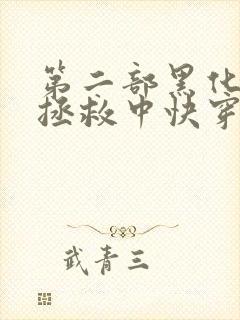 第二部黑化
拯救中快穿
武青三